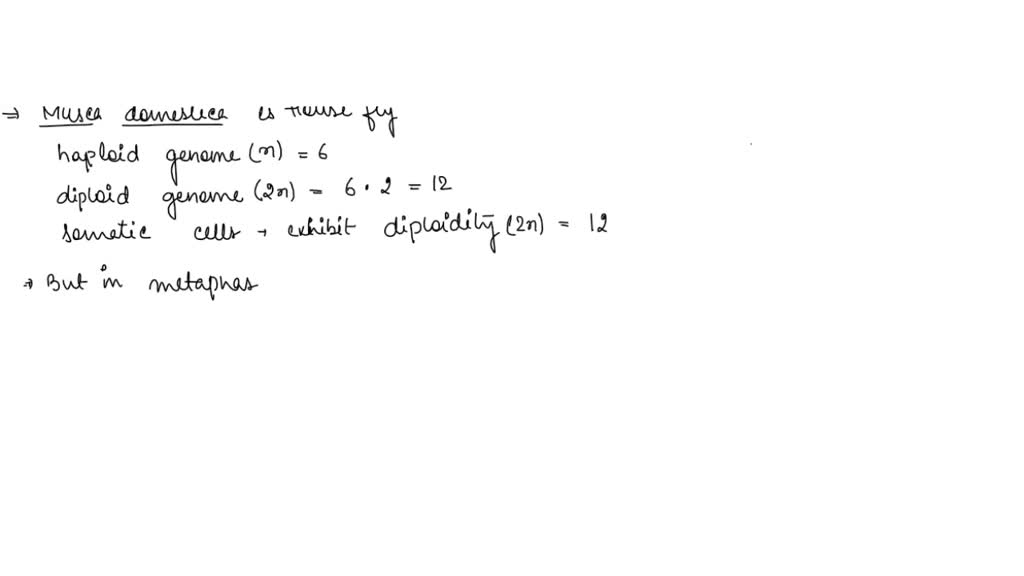 → Musca domestica is House fly
haploid genome (n) = 6
diploid genome (2n) = 6 · 2 = 12
somatic cells → exhibit diploidity (2n) = 12
→ But in metaphas